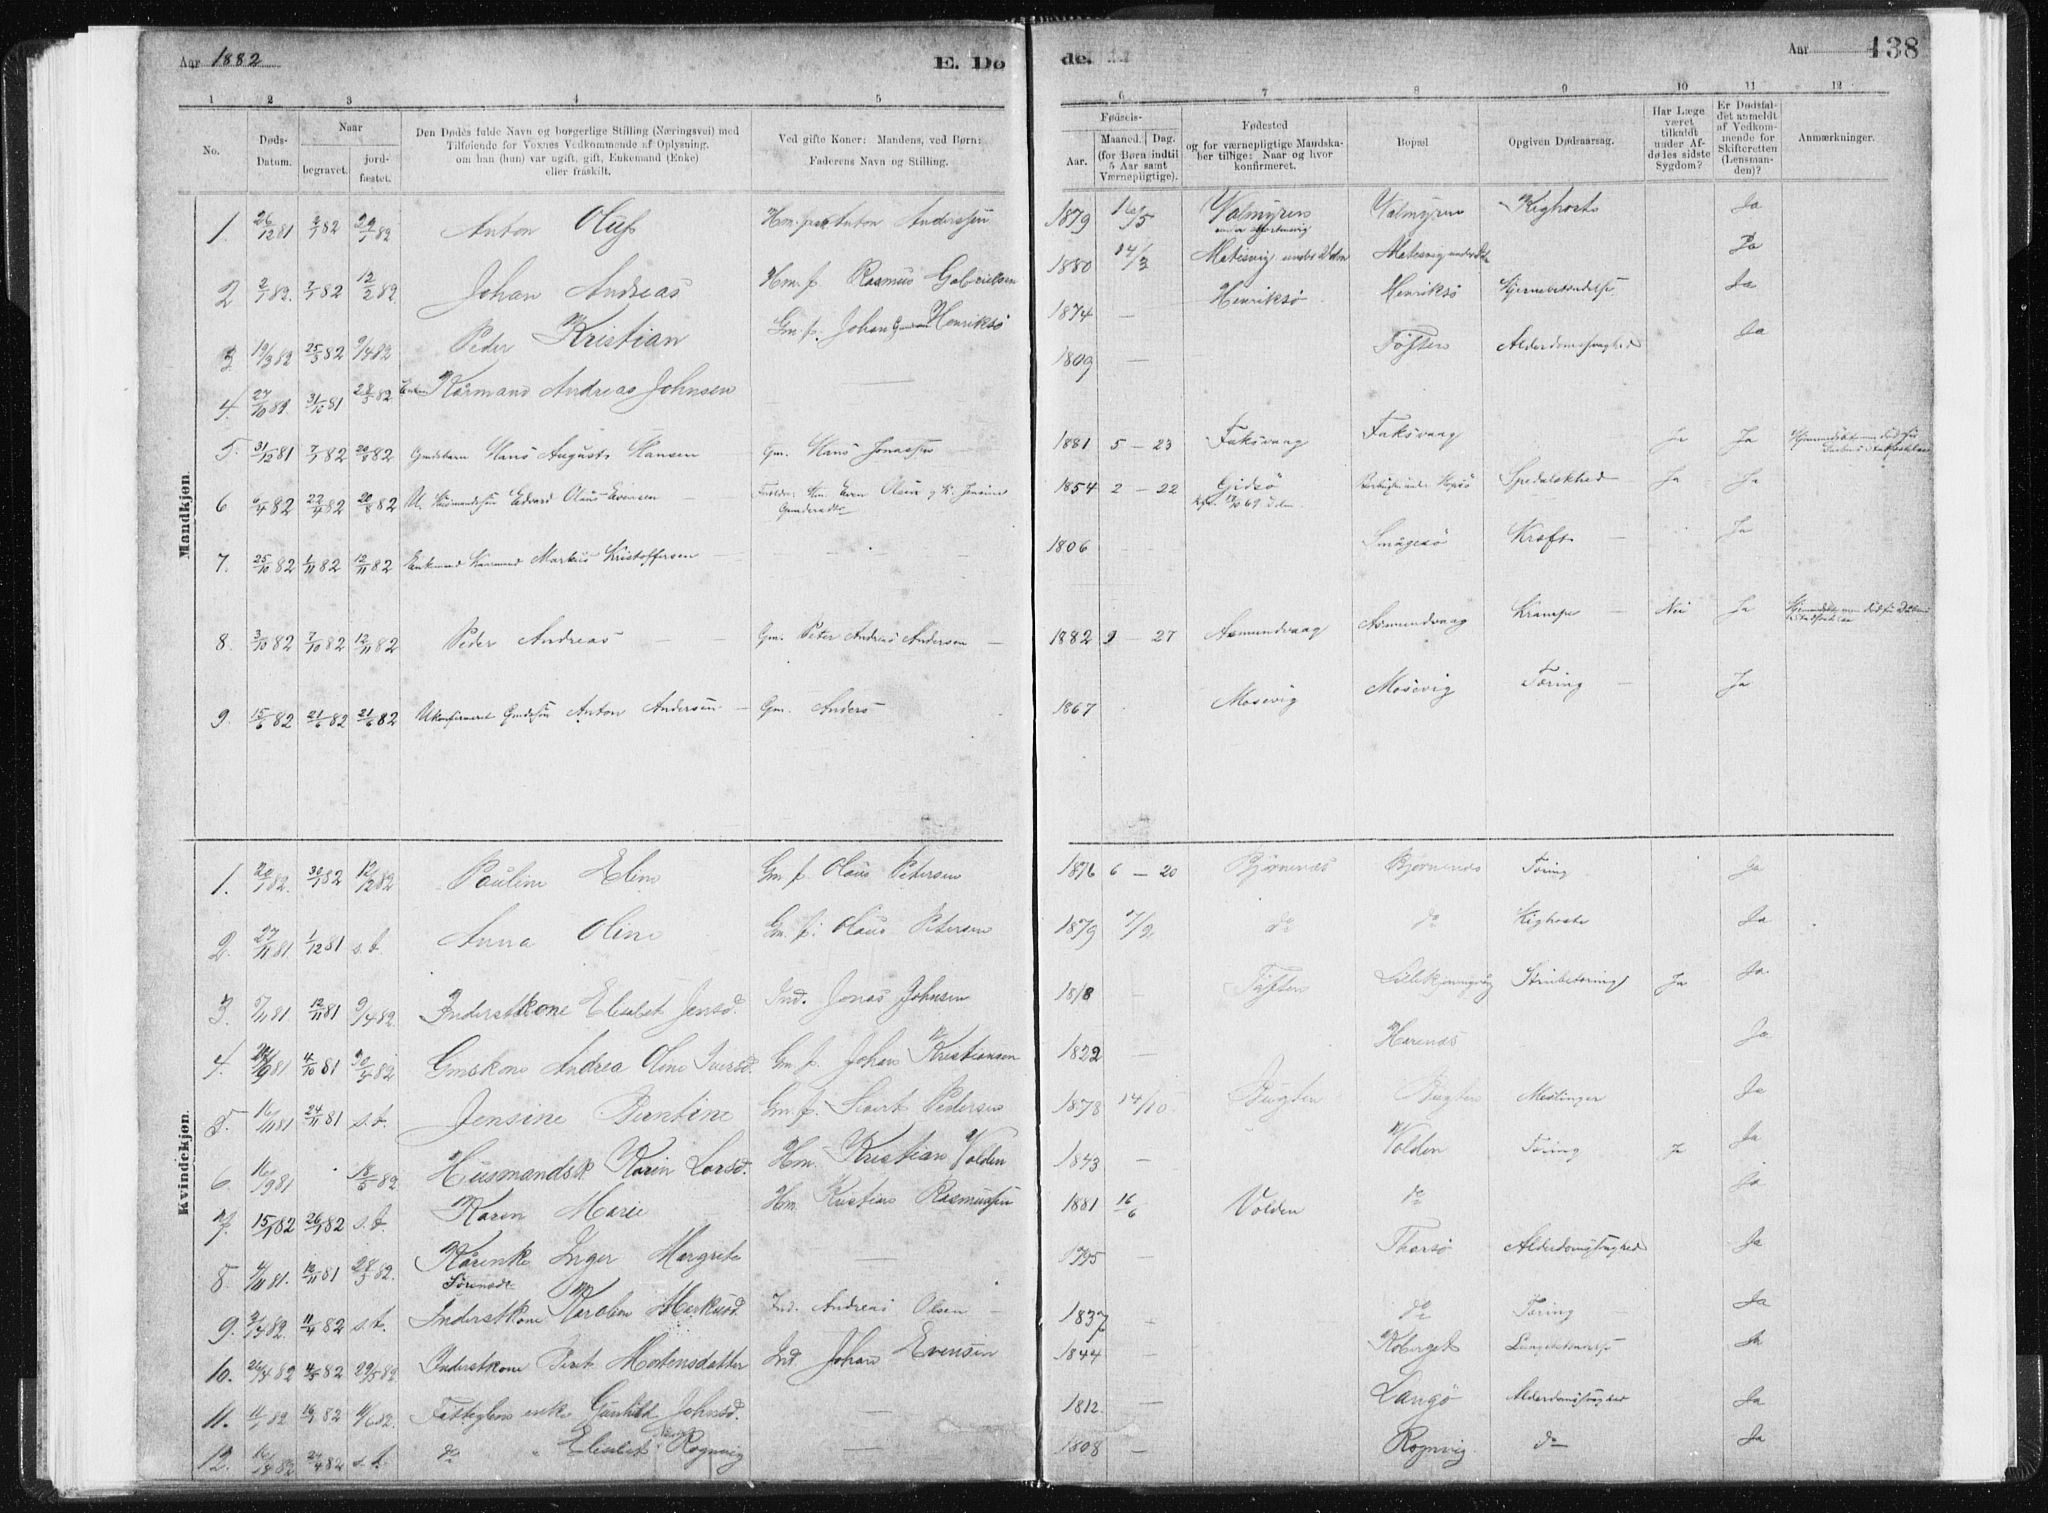 Aar 1882
E. Dø
de.
Aar
138
1 2 3 4 5
6 7 8 9 10 11 12
No.
Døds-
Datum.
Naar
begravet.
jord-
fæstet.
Den Dødes fulde Navn og borgerlige Stilling (Næringsvei) med
Tilføiende for Voxnes Vedkommende af Oplysning,
om han (hun) var ugift, gift, Enkemand (Enke)
eller fraskilt.
Ved gifte Koner: Mandens, ved Børn:
Faderens Navn og Stilling.
Fødsels-
Aar.
Maaned. Dag.
(for Børn indtil
5 Aar samt
Værnepligtige).
Fødested
og for værnepligtige Mandska-
ber tillige: Naar og hvor
konfirmeret.
Bopæl
Opgiven Dødsaarsag.
Har Læge
været
tilkaldt
under Af-
dødes sidste
Sygdom?
Er Dødsfal-
det anmeldt
af Vedkom-
mende for
Skifteretten
(Lensman-
den)?
Anmærkninger.
Mandkjøn.
1. 26/12 81 2/1 82 29/1 82 Anton Oluf Anton Anderssen 1879 16/5 Kighoste Ja
2 2/1 82. 7/1 82 12/2 82 Johan Andreas Hm. f. Rasmus Gabrielsen 1880 14/3 Ja
3 19/3 82 25/3 82 9/4 82 Peder Kristian Gm. f. Johan Henriksø 1874 — Henriksø Henriksø Hjernebetændelse Ja
4. 31/10 81 28/5 82 Kårmand Andreas Johnsen — 1809 — Tøften Alderdomssvaghed Ja
5. 31/12 81 7/1 82 82 Hans August Hansen Gm. Hans Jonassen 1881 5 – 23 Faksvaag Faksvaag Ja Ja
6 6/4 82 22/4 82 20/8 82 Edvard Olaus Evensen Even Olsen 1854 2 – 22 Gidsø Spedalskhed Ja Ja
7. 25/10 82 1/11 82 12/11 82 Enkemand Kaarmand Markus Kristoffersen 1806 Smågesø Kræft Ja
8. 3/10 82 7/10 82 12/11 82 Peder Andreas Gm. Peter Andreas Andersen 1882 9 – 27 Asmundvaag Asmundvaag Krampe Nei Ja
9. 15/6 82 21/6 82 21/6 82 Ukonfirmeret Anton Andersen Gm. Anders 1867 Mosevig Mosevig Tæring Ja
Kvindekjøn.
1. 20/1 82. 30/1 82 12/2 82 Pauline Eline Gm. f. Olaus Petersen 1876 6 – 20 Bjørnenæs Bjørnenæs Tæring Ja
2. 27/11 81 1/12 81 s.t. Anna Oline Gm. f. Olaus Petersen 1879 7/2 do do Kighoste Ja
3. 7/11 81 12/11 81 9/4 82. Inderstkone Elisabet Jensd. Ind. Jonas Johnsen 1818 — Tøften Ja Ja
4. 4/10 81 82 Gmskone Andrea Oline Iversd. Gm. f. Johan Kristiansen 1822 — Ja
5. 16/11 81 24/11 81 s.t. Jensine Berntine Gm. f. Sivert Pedersen 1878 14/10 Bugten Bugten Meslinger Ja
6. 16/9 81 18/5 82 Husmandsk Karin Larsd. Hm. Kristian Volden 1843 — Volden Tæring Ja Ja
7. 15/1 82 26/1 82 s.t. Karen Marie Hm. Kristian Rasmussen 1881 16/6 Volden do Ja
8. 4/11 81. 12/11 81 28/5 82. Kårenke Inger Margrete — 1795 — Thorsø Alderdomssvaghed Ja
Sørensdt.
9. 3/4 82. 11/4 82 s.t. Inderstkone Karoline Markusd. Ind. Andreas Olsen — 1837 — do Tæring Ja
10. 26/4 82 4/5 82 29/5 82 Inderstkone Berit Mortensdatter Ind. Johan Evensen 1844 — Roberget Lungebetændelse Ja
11. 11/1 82 19/1 82 11/6 82. enke Gunhild Johnsd. — 1812. — Langø Alderdomssvaghed Ja
12. 16/4 82 24/4 82 s.t. do " Elisabet Rognvig — 1808 — Rognvig do Ja